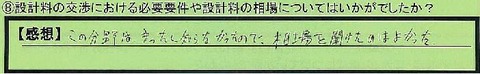 ⑧設計料の交渉における必要要件や設計料の相場についてはいかがでしたか？
【感想】この分野はまったく知らなかったので、相場を聞けてよかった